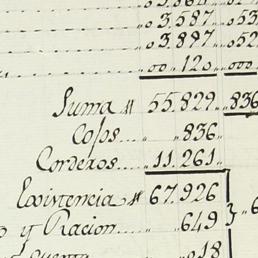 3.587
3.897
120
Suma 55.829 836
Cojos 836
Corderos 11.261
Existencia 67.926
y Racion 649
18